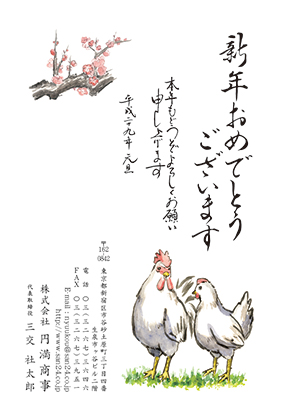 新年おめでとう
ございます
本年もどうぞよろしくお願い
申し上げます
平成二十九年 元旦
〒
162
0842
東京都新宿区市谷砂土原町三丁目四番
生泉市ヶ谷ビル二階
電話 〇三（三二六七）三六四六
FAX 〇三（三二六七）三九五一
E-mail:nyuukou@san24.co.jp
http://www.san24.co.jp
株式会社 円満商事
代表取締役 三交社太郎